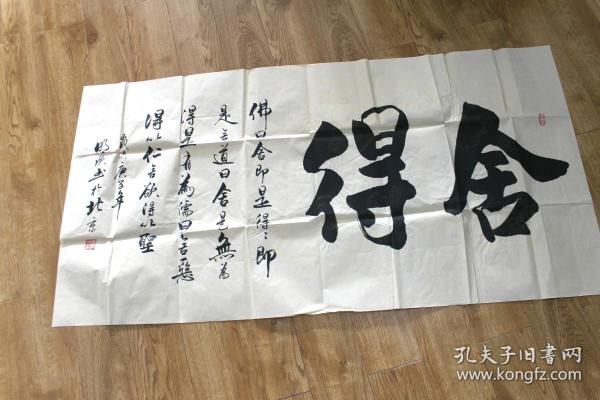 舍得
佛曰舍即是得〻即
是舍道曰舍是無為
得是有為儒曰舍惡
得以仁舍欲得以聖
庚子年
书於北京
孔夫子旧書网
www.kongfz.com